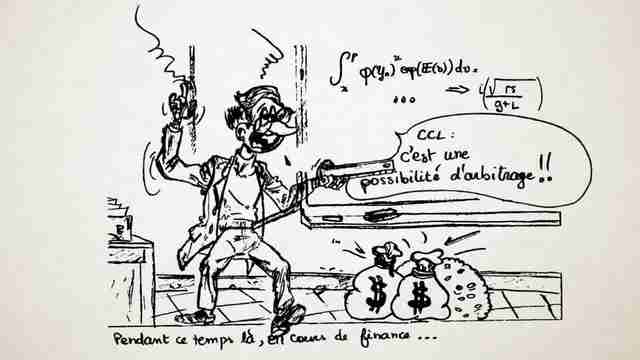 ∫ φ(yₙ)ˣ exp(E(v)) dv.
... ⇒ (√rs / g+L)
CCL :
c'est une
possibilité d'arbitrage !!
$ $
Pendant ce temps là, en cours de finance ...